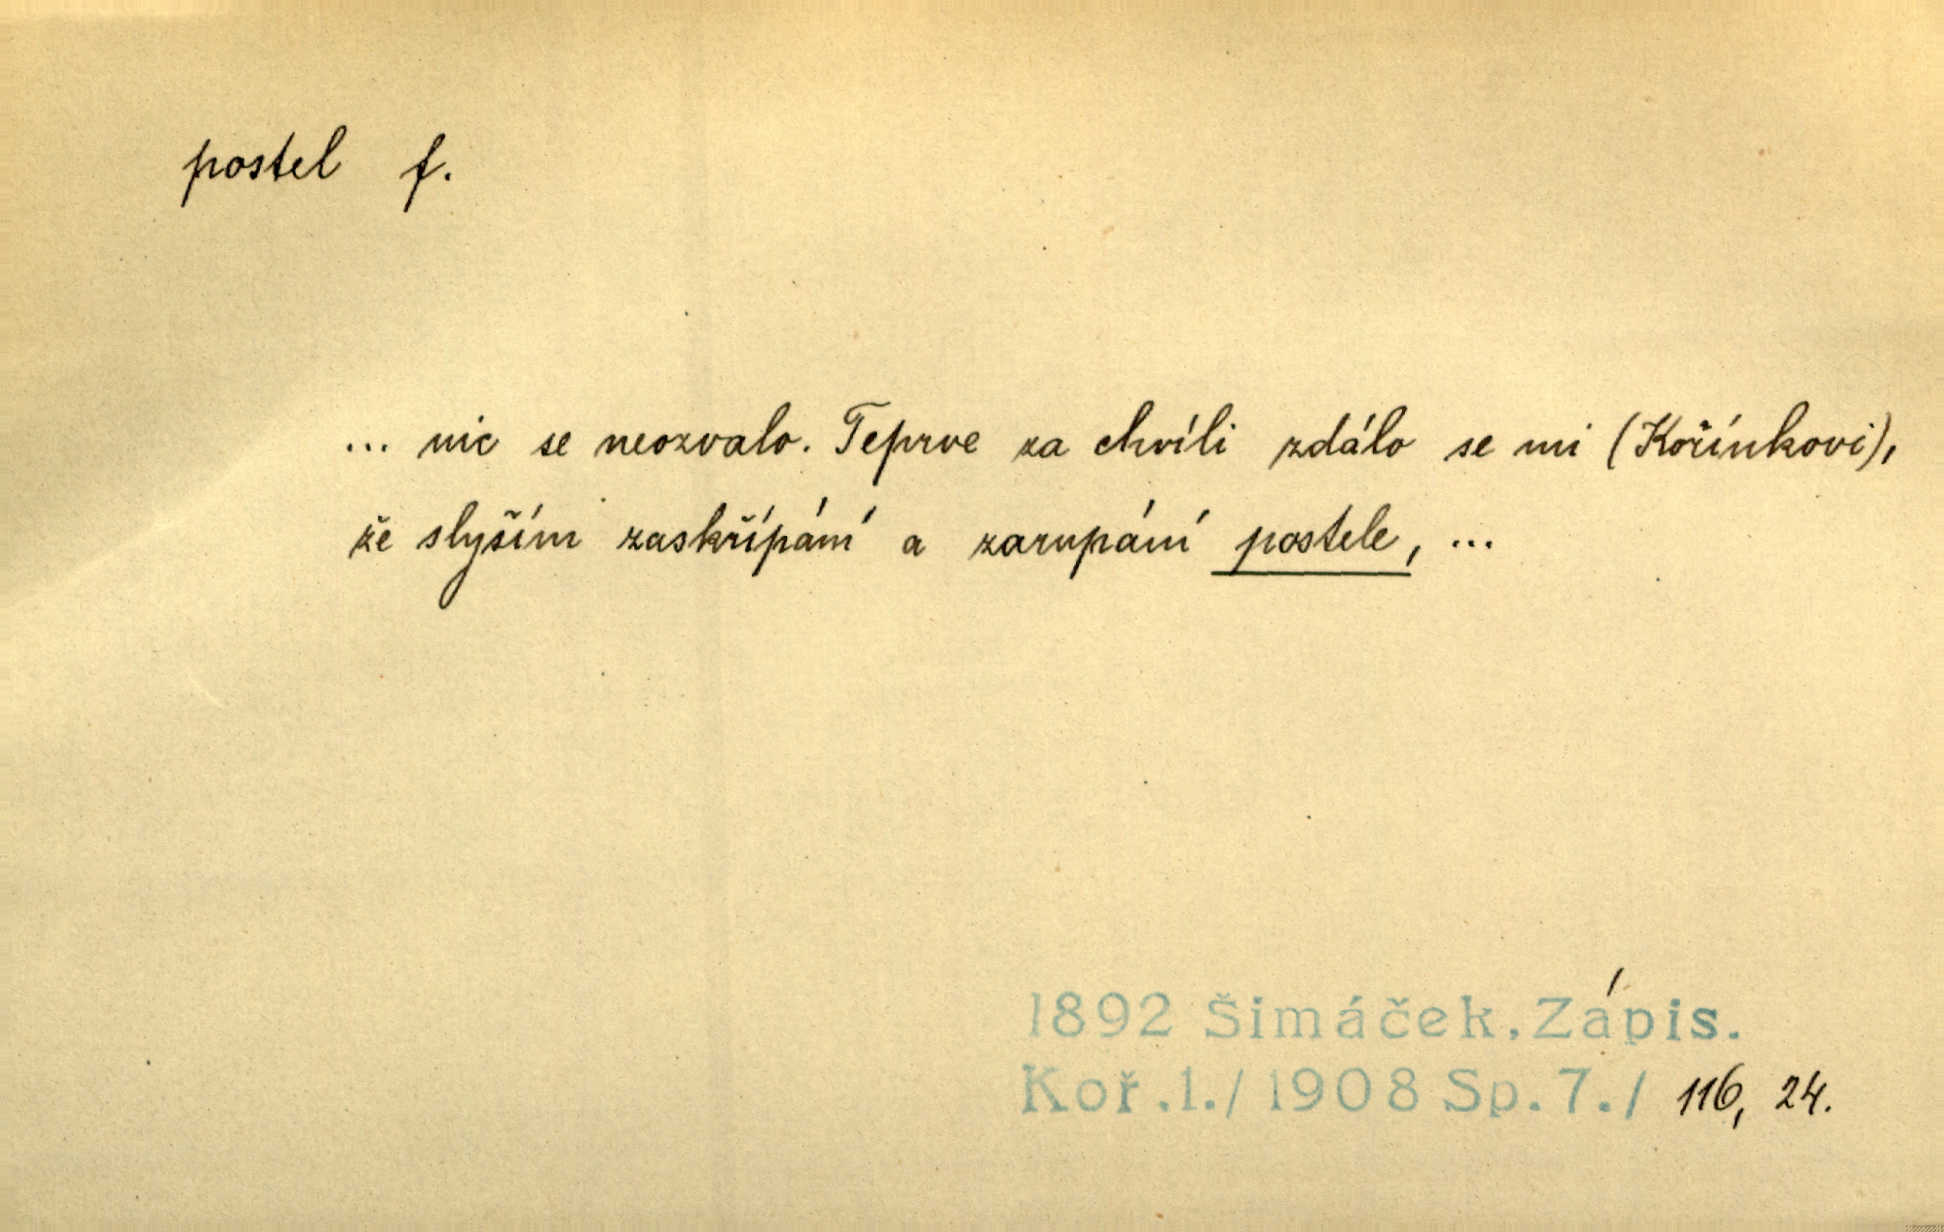 postel f.
... nic se neozvalo. Teprve za chvíli zdálo se mi (Kořínkovi),
že slyším zaskřípání a zarupání postele, ...
1892 Šimáček, Zápis.
Koř.1./1908 Sp.7./ 116, 24.